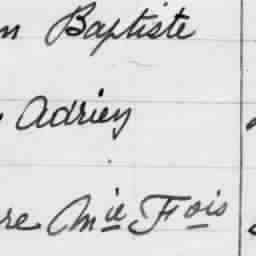 n Baptiste
Adrien
re Mie Fois